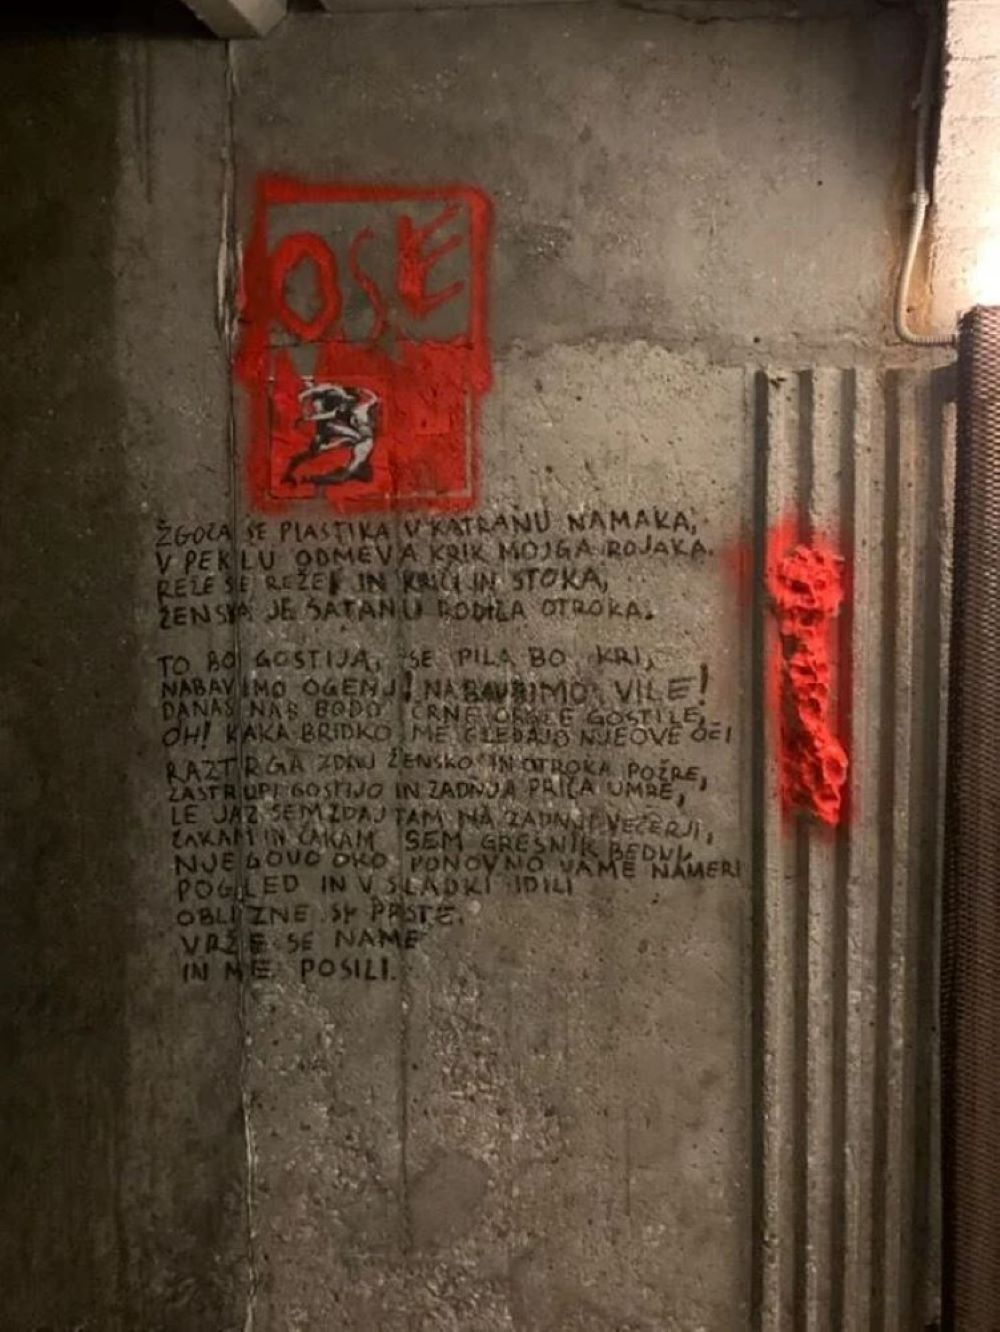 OSE
ŽGOČA SE PLASTIKA V KATRANU NAMAKA,
V PEKLU ODMEVA KRIK MOJGA ROJAKA.
REŽE SE REŽE IN KRIČI IN STOKA,
ŽENSKA JE SATANU RODILA OTROKA.
TO BO GOSTIJA, SE PILA BO KRI,
NABAVIMO OGENJ! NABAVIMO VILE!
DANAS NAS BODO ČRNE GOSTILE,
OH! KAKA BRIDKO ME GLEDAJO NJEOVE OČI
RAZTRGA ZDAJ ŽENSKO IN OTROKA POŽRE,
ZASTRUPI GOSTIJO IN ZADNJA PRIČA UMRE,
LE JAZ SEM ZDAJ TAM NA ZADNJI VEČERJI,
ČAKAM IN ČAKAM SEM GREŠNIK BEDNI,
NJEGOVO OKO PONOVNO VAME NAMERI
POGLED IN V SLADKI IDILI
OBLIZNE SI PRSTE.
VRŽE SE NAME
IN ME POSILI.